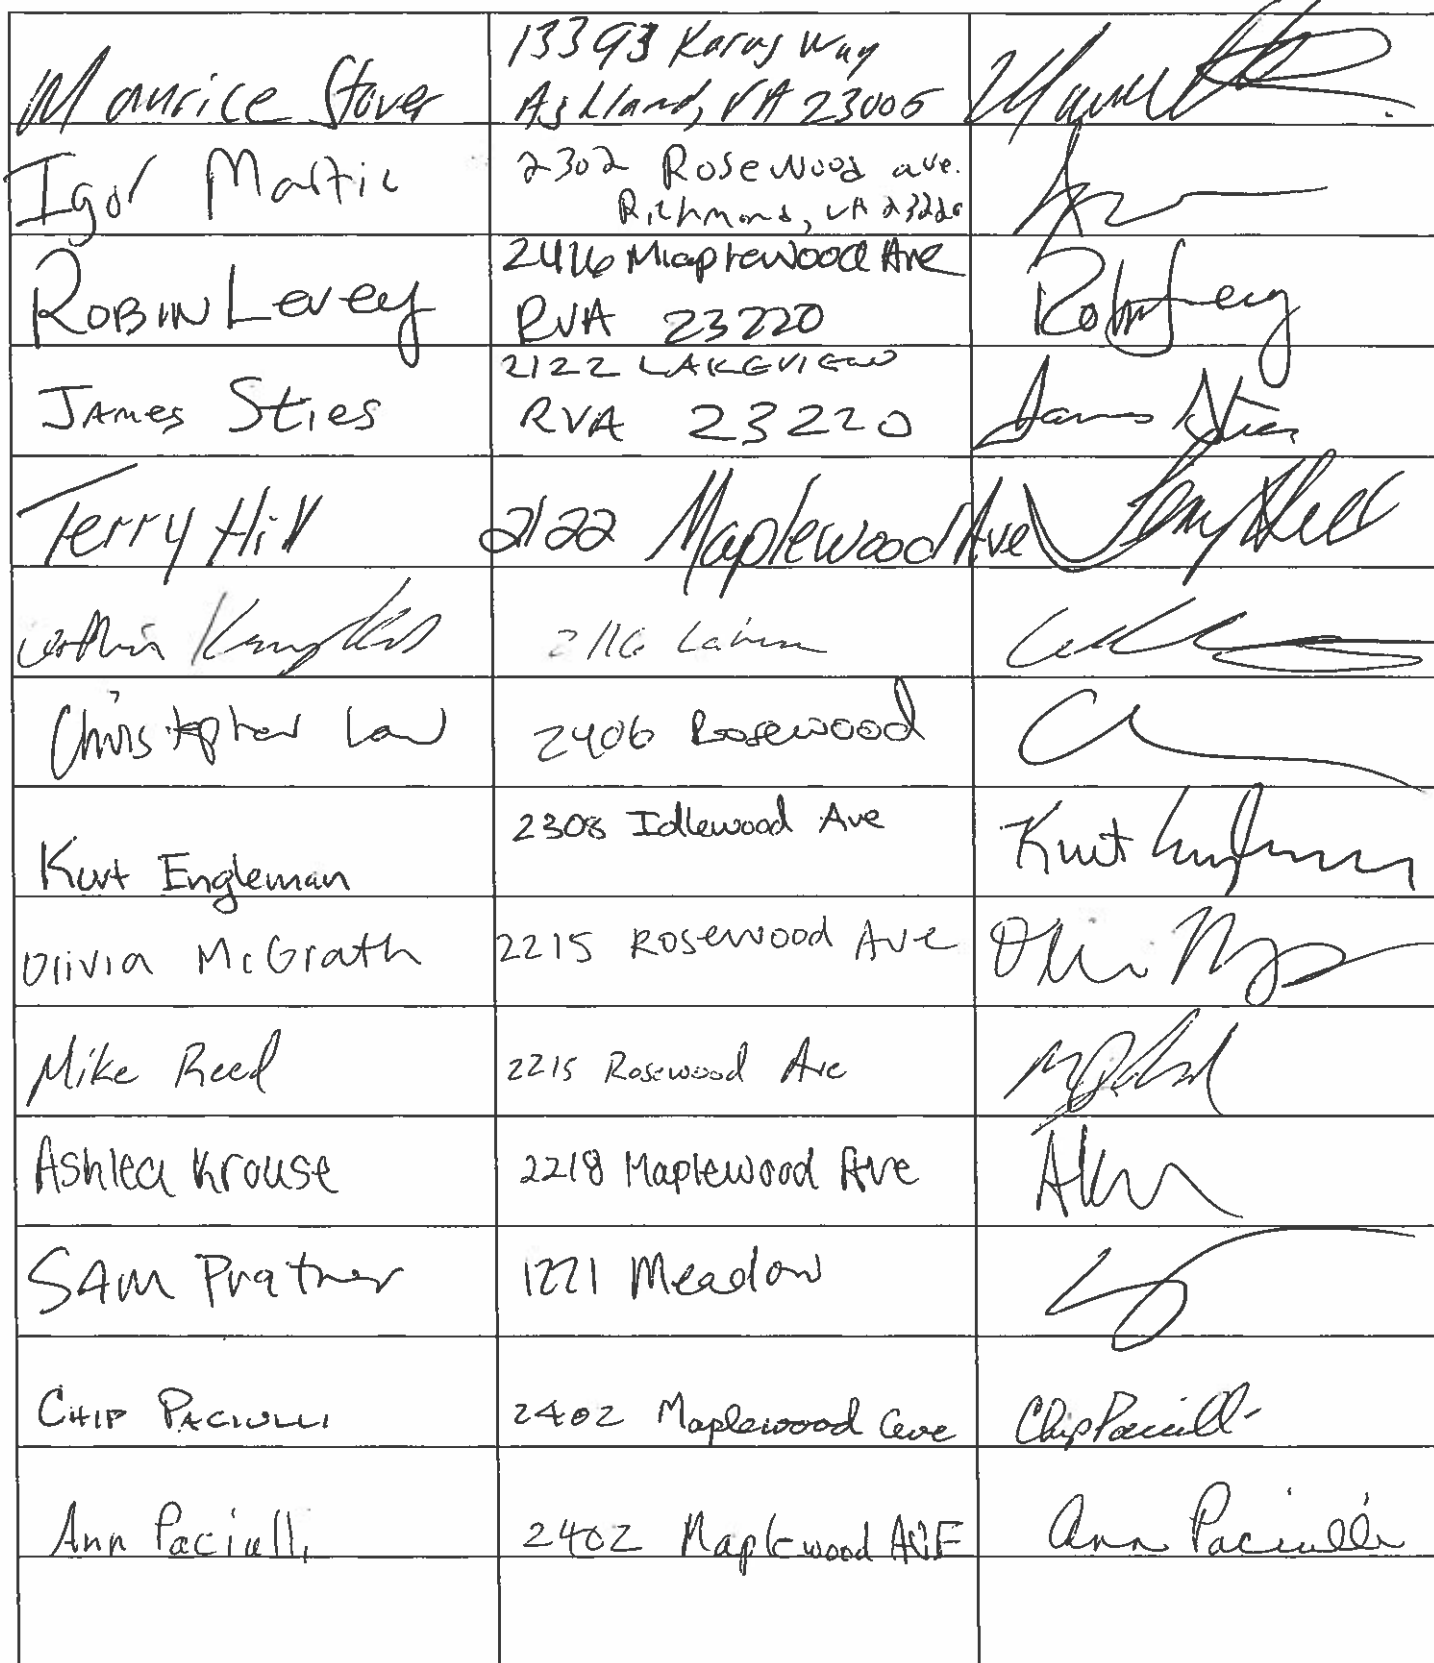 Maurice Stover
13393 Karas Way
Ashland, VA 23005
Igor Martic
2302 Rosewood ave.
Richmond, VA 23220
Robin Levey
2416 Maplewood Ave
RVA 23220
Robin Levey
James Sties
2122 LAKEVIEW
RVA 23220
James Sties
Terry Hill
2122 Maplewood Ave
Terry Hill
2116
Christopher Law
2406 Rosewood
Kurt Engleman
2308 Idlewood Ave
Kurt Engleman
Olivia McGrath
2215 Rosewood Ave
Mike Reed
2215 Rosewood Ave
Ashlea Krouse
2218 Maplewood Ave
SAM Pratner
1221 Meadow
CHIP PACIULLI
2402 Maplewood Ave
Chip Paciulli
Ann Paciulli
2402 Maplewood AVE
Ann Paciulli